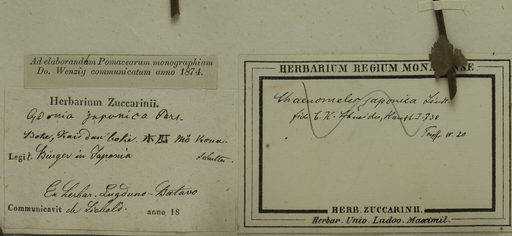 Ad elaborandum Pomacearum monographiam
Do. Wenzig communicatum anno 1874.
Herbarium Zuccarinii.
Cydonia japonica Pers.
Boke, 木瓜
Legit. Bürger in Japonia
Ex herbar. Lugduno-Batavo
Communicavit de Siebold. anno 18
HERBARIUM REGIUM MONACENSE
Chaenomeles japonica Lindl.
fid. C. K. Schneider,
HERB. ZUCCARINII.
Herbar. Univ. Ludov. Maximil.